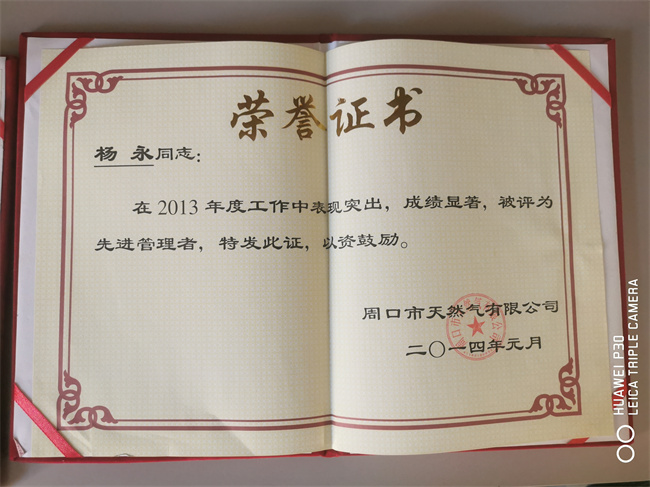 荣誉证书
杨 永同志：
在2013年度工作中表现突出，成绩显著，被评为
先进管理者，特发此证，以资鼓励。
周口市天然气有限公司
二〇一四年元月
HUAWEI P30
LEICA TRIPLE CAMERA